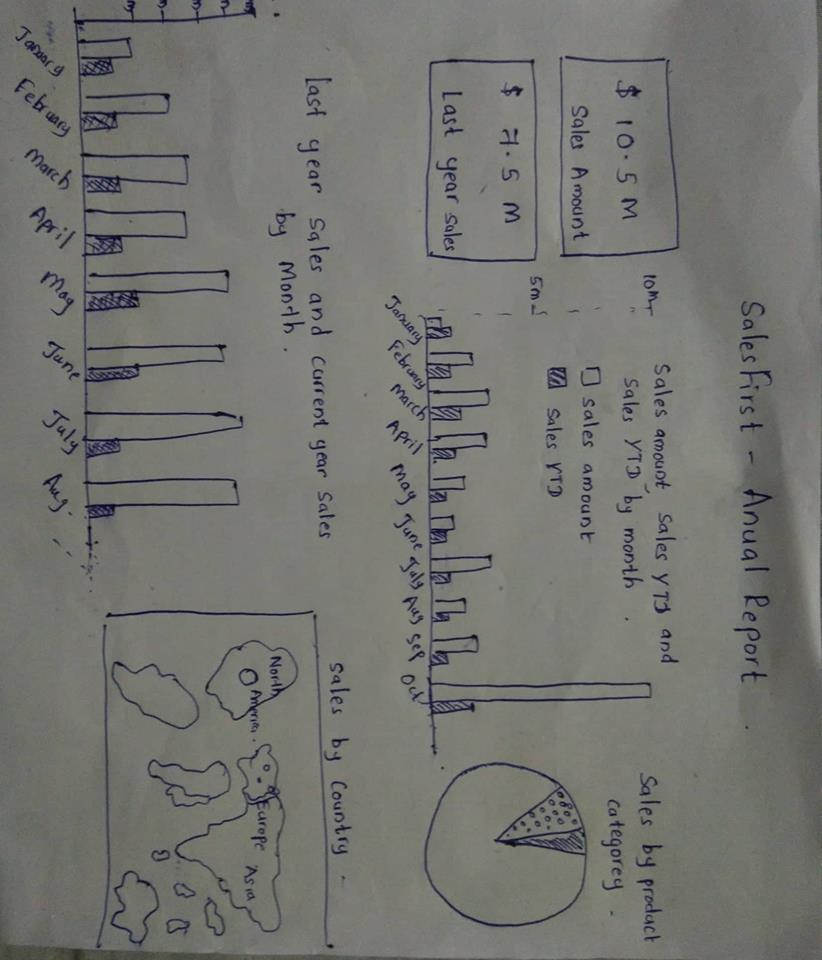 SalesFirst - Anual Report .
$ 10.5 M
Sales Amount
$ 7.5 M
Last year Sales
Sales amount, Sales YTD and
Sales YTD by month .
Sales amount
Sales YTD
10M
5m
January February March April May June July Aug Sep Oct
Sales by product
categorey .
Last year Sales and current year Sales
by Month .
January February March April May June July Aug.
Sales by Country -
North
America .
Europe
Asia